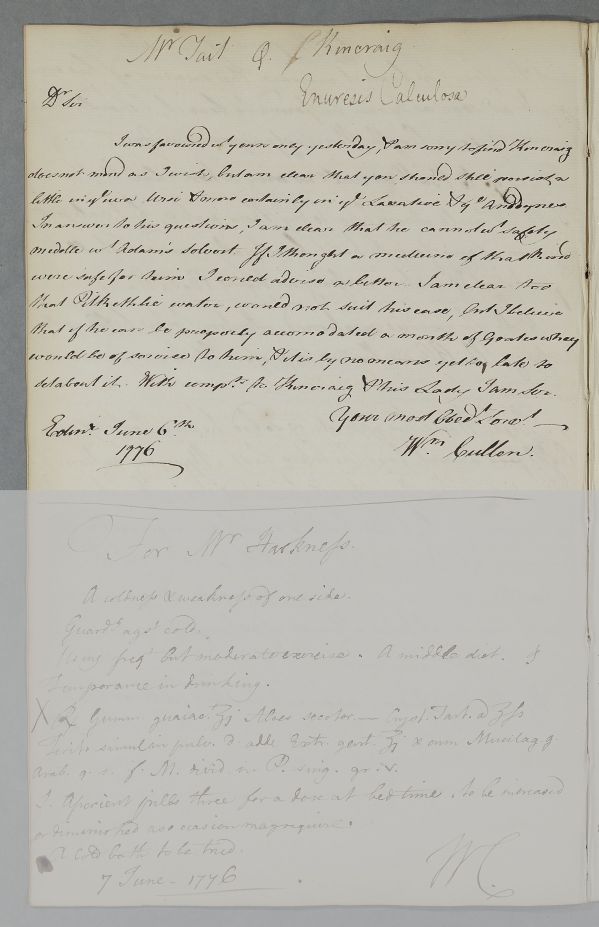 Mr Tait Q. Kincraig
Enuresis Calculosa
Dr Sir
I was favoured wt yours only yesterday, & am sorry to find Kincraig
does not mend as I wish, but am clear that you should still persist a
little in ye uva Ursi & more certainly in ye Laxative & ye Anodynes
In answer to his question, I am clear that he cannot wt safety
meddle wt Adam's solvent. If I thought a medicine of that kind
were safe for him I could advise a better. I am clear too
that Pitkethlie water, would not suit his case, but I believe
that if he can be properly accomodated a month of Goates whey
would be of service to him, & it is by no means yet too late to
set about it. With compts to Kincraig & his Lady I am Sir.
Your most Obedt Servt
Edinr June 6th
1776
Wm Cullen.
For Mr Harkness.
A coldness & weakness of one side.
Guard agst cold.
Using freqt but moderate exercise. A middle diet. &
Temperance in drinking.
X ℞ Gumm. guaiac. ʒj Aloes socotor. — Cryst. Tart. a ʒss
Terito simul in pulv. & adde Extr. gent. ʒj & cum Mucilag. g.
Arab. q. s. f. M. divid. in P. sing. gr. v.
S. Aperient pills three for a dose at bed time to be increased
or diminished as occasion may require.
cold bath to be tried.
7 June - 1776
WC.